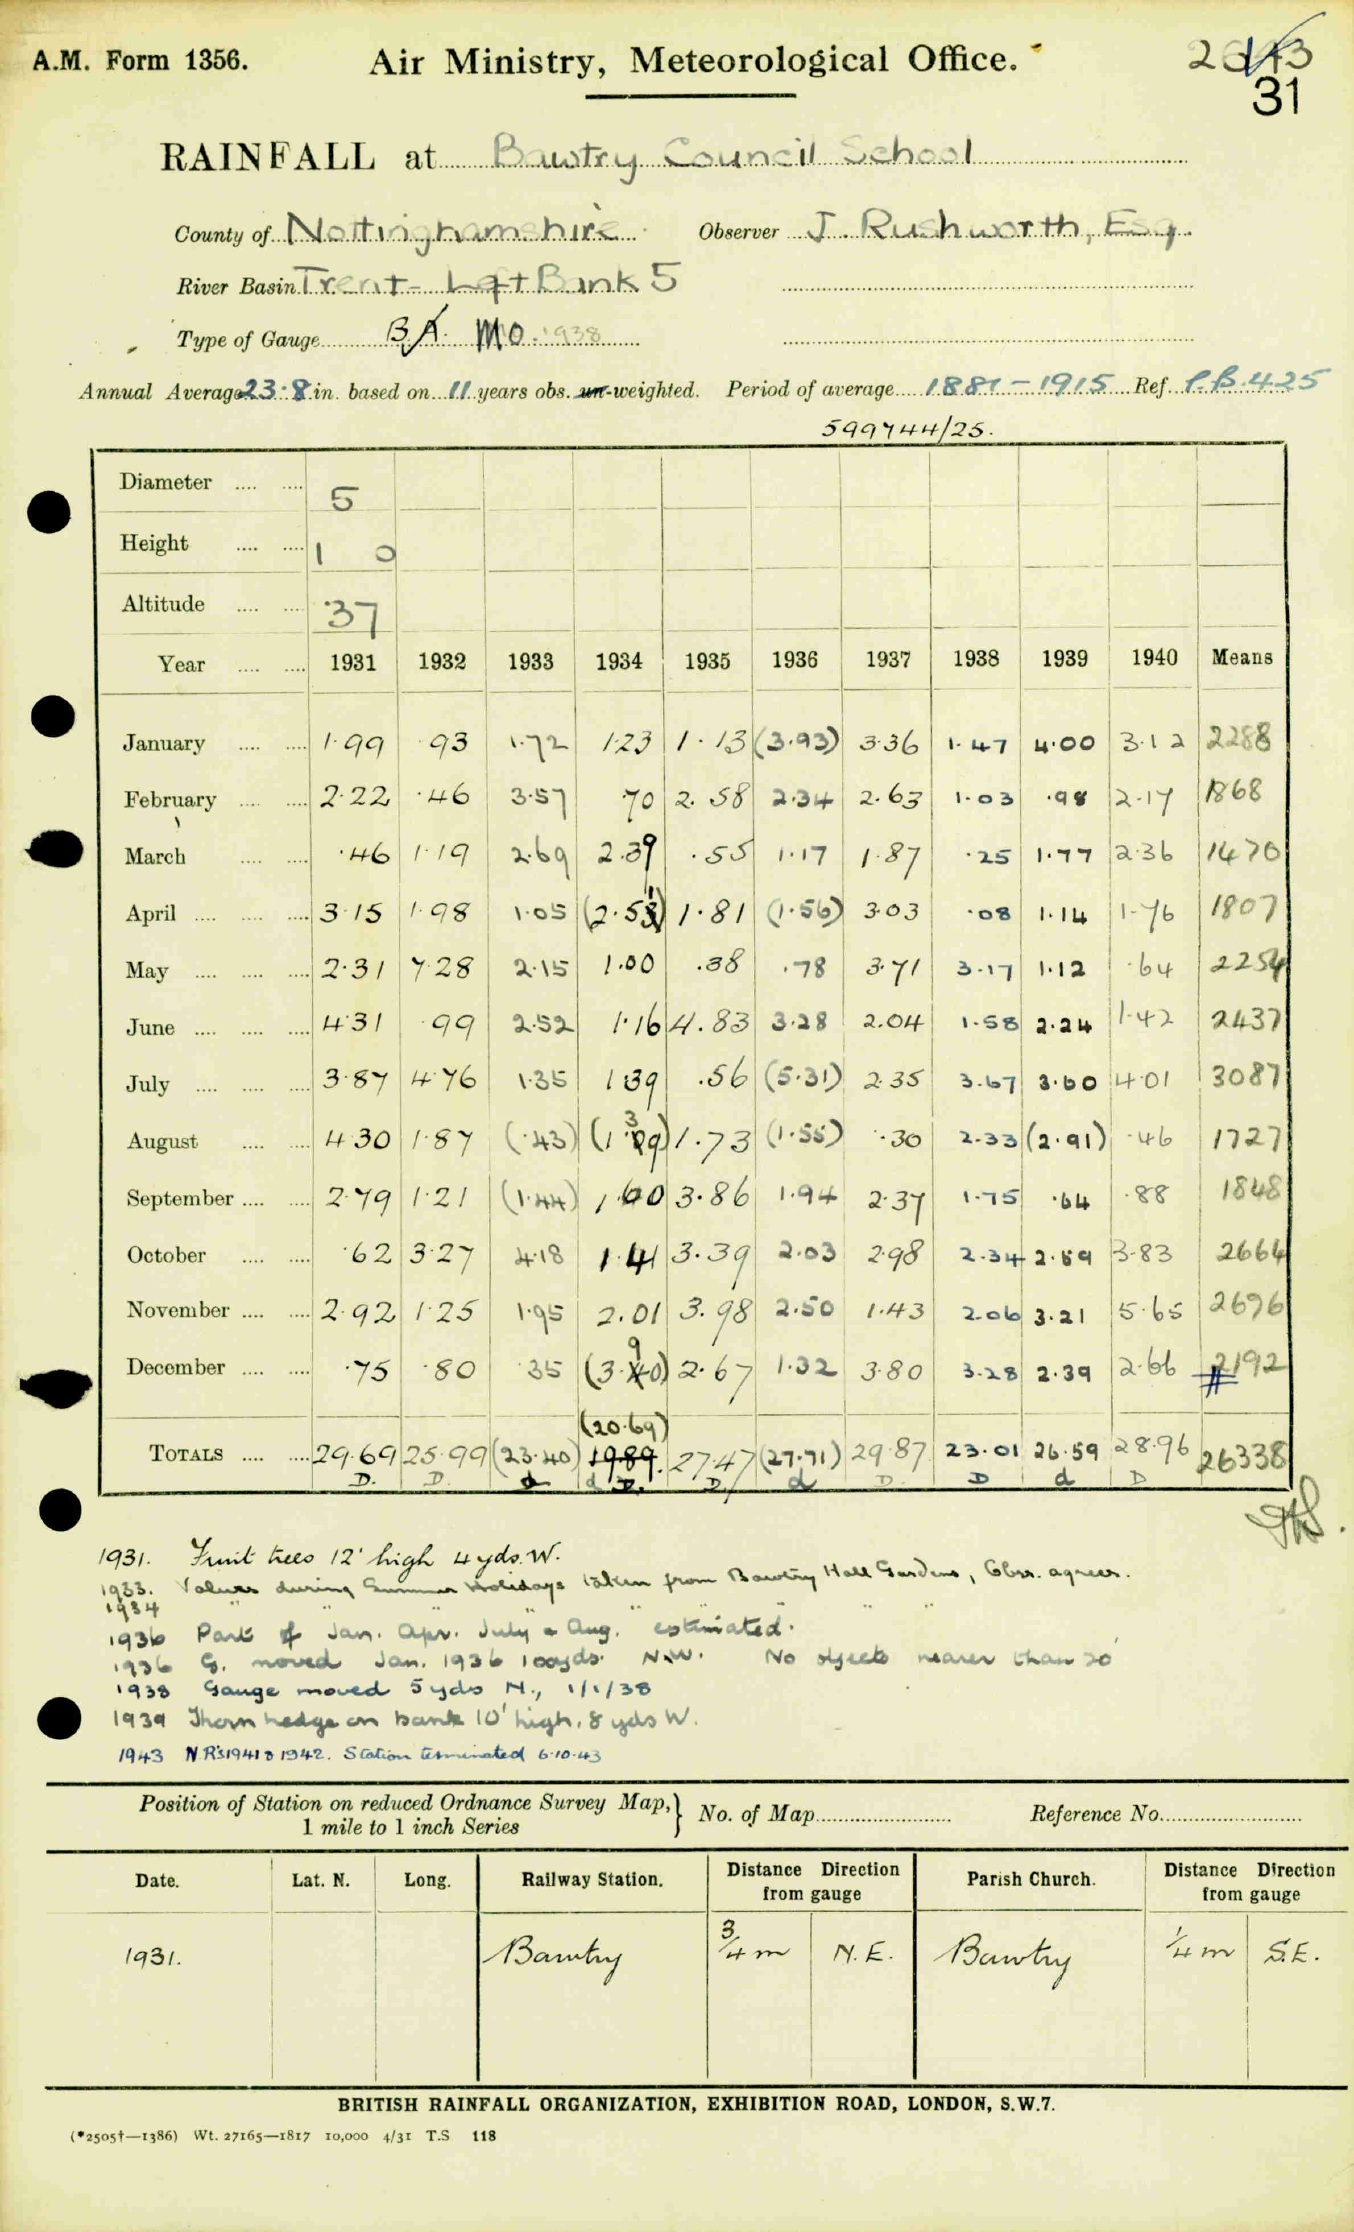 A.M. Form 1356.
Air Ministry, Meteorological Office.
31
RAINFALL at Bawtry Council School
County of Nottinghamshire Observer J. Rushworth, Esq.
River Basin Trent - Left Bank 5
Type of Gauge B.A. MO. 1938
Annual Average 23.8 in. based on 11 years obs. un-weighted. Period of average 1881-1915 Ref. P.B.425
599744/25.
Diameter .... .... 5
Height .... .... 1 0
Altitude .... .... 37
Year .... .... 1931 1932 1933 1934 1935 1936 1937 1938 1939 1940 Means
January .... .... 1.99 .93 1.72 1.23 1.13 (3.93) 3.36 1.47 4.00 3.12 2288
February .... .... 2.22 .46 3.57 70 2.58 2.34 2.63 1.03 .98 2.17 1868
March .... .... .46 1.19 2.69 2.39 .55 1.17 1.87 .25 1.77 2.36 1470
April .... .... .... 3.15 1.98 1.05 (2.51) 1.81 (1.56) 3.03 .08 1.14 1.76 1807
May .... .... .... 2.31 7.28 2.15 1.00 .38 .78 3.71 3.17 1.12 .64 2254
June .... .... .... 4.31 .99 2.52 1.16 4.83 3.28 2.04 1.58 2.24 1.42 2437
July .... .... .... 3.87 4.76 1.35 1 39 .56 (5.31) 2.35 3.67 3.60 4.01 3087
August .... .... 4.30 1.87 (.43) (1.39) 1.73 (1.55) .30 2.33 (2.91) .46 1727
September .... .... 2.79 1.21 (1.44) 1.60 3.86 1.94 2.37 1.75 .64 .88 1848
October .... .... .62 3.27 4.18 1.41 3.39 2.03 2.98 2.34 2.59 3.83 2664
November .... .... 2.92 1.25 1.95 2.01 3.98 2.50 1.43 2.06 3.21 5.65 2696
December .... .... .75 .80 35 (3.90) 2.67 1.32 3.80 3.28 2.39 2.66 2192
(20.69)
TOTALS .... .... 29.69 25.99 (23.40) 19.89. 27.47 (27.71) 29.87 23.01 26.59 28.96 26338
D. D. d d D. D. d D. D d D
1931. Fruit trees 12' high 4 yds. W.
1933. Values during Summer Holidays taken from Bawtry Hall Gardens, Obsr. agrees.
1934 " " " " " "
1936 Part of Jan. Apr. July & Aug. estimated.
1936 G. moved Jan. 1936 100yds. N.W. No objects nearer than 20'
1938 Gauge moved 5 yds N., 1/1/38
1939 Thorn hedge on bank 10' high, 8 yds W.
1943 N R's 1941 & 1942. Station terminated 6.10.43
Position of Station on reduced Ordnance Survey Map,} No. of Map Reference No.
1 mile to 1 inch Series
Date. Lat. N. Long. Railway Station. Distance Direction from gauge Parish Church. Distance Direction from gauge
1931. Bawtry 3/4 m N.E. Bawtry 1/4 m S.E.
BRITISH RAINFALL ORGANIZATION, EXHIBITION ROAD, LONDON, S.W.7.
(*2505†—1386) Wt. 27165—1817 10,000 4/31 T.S 118